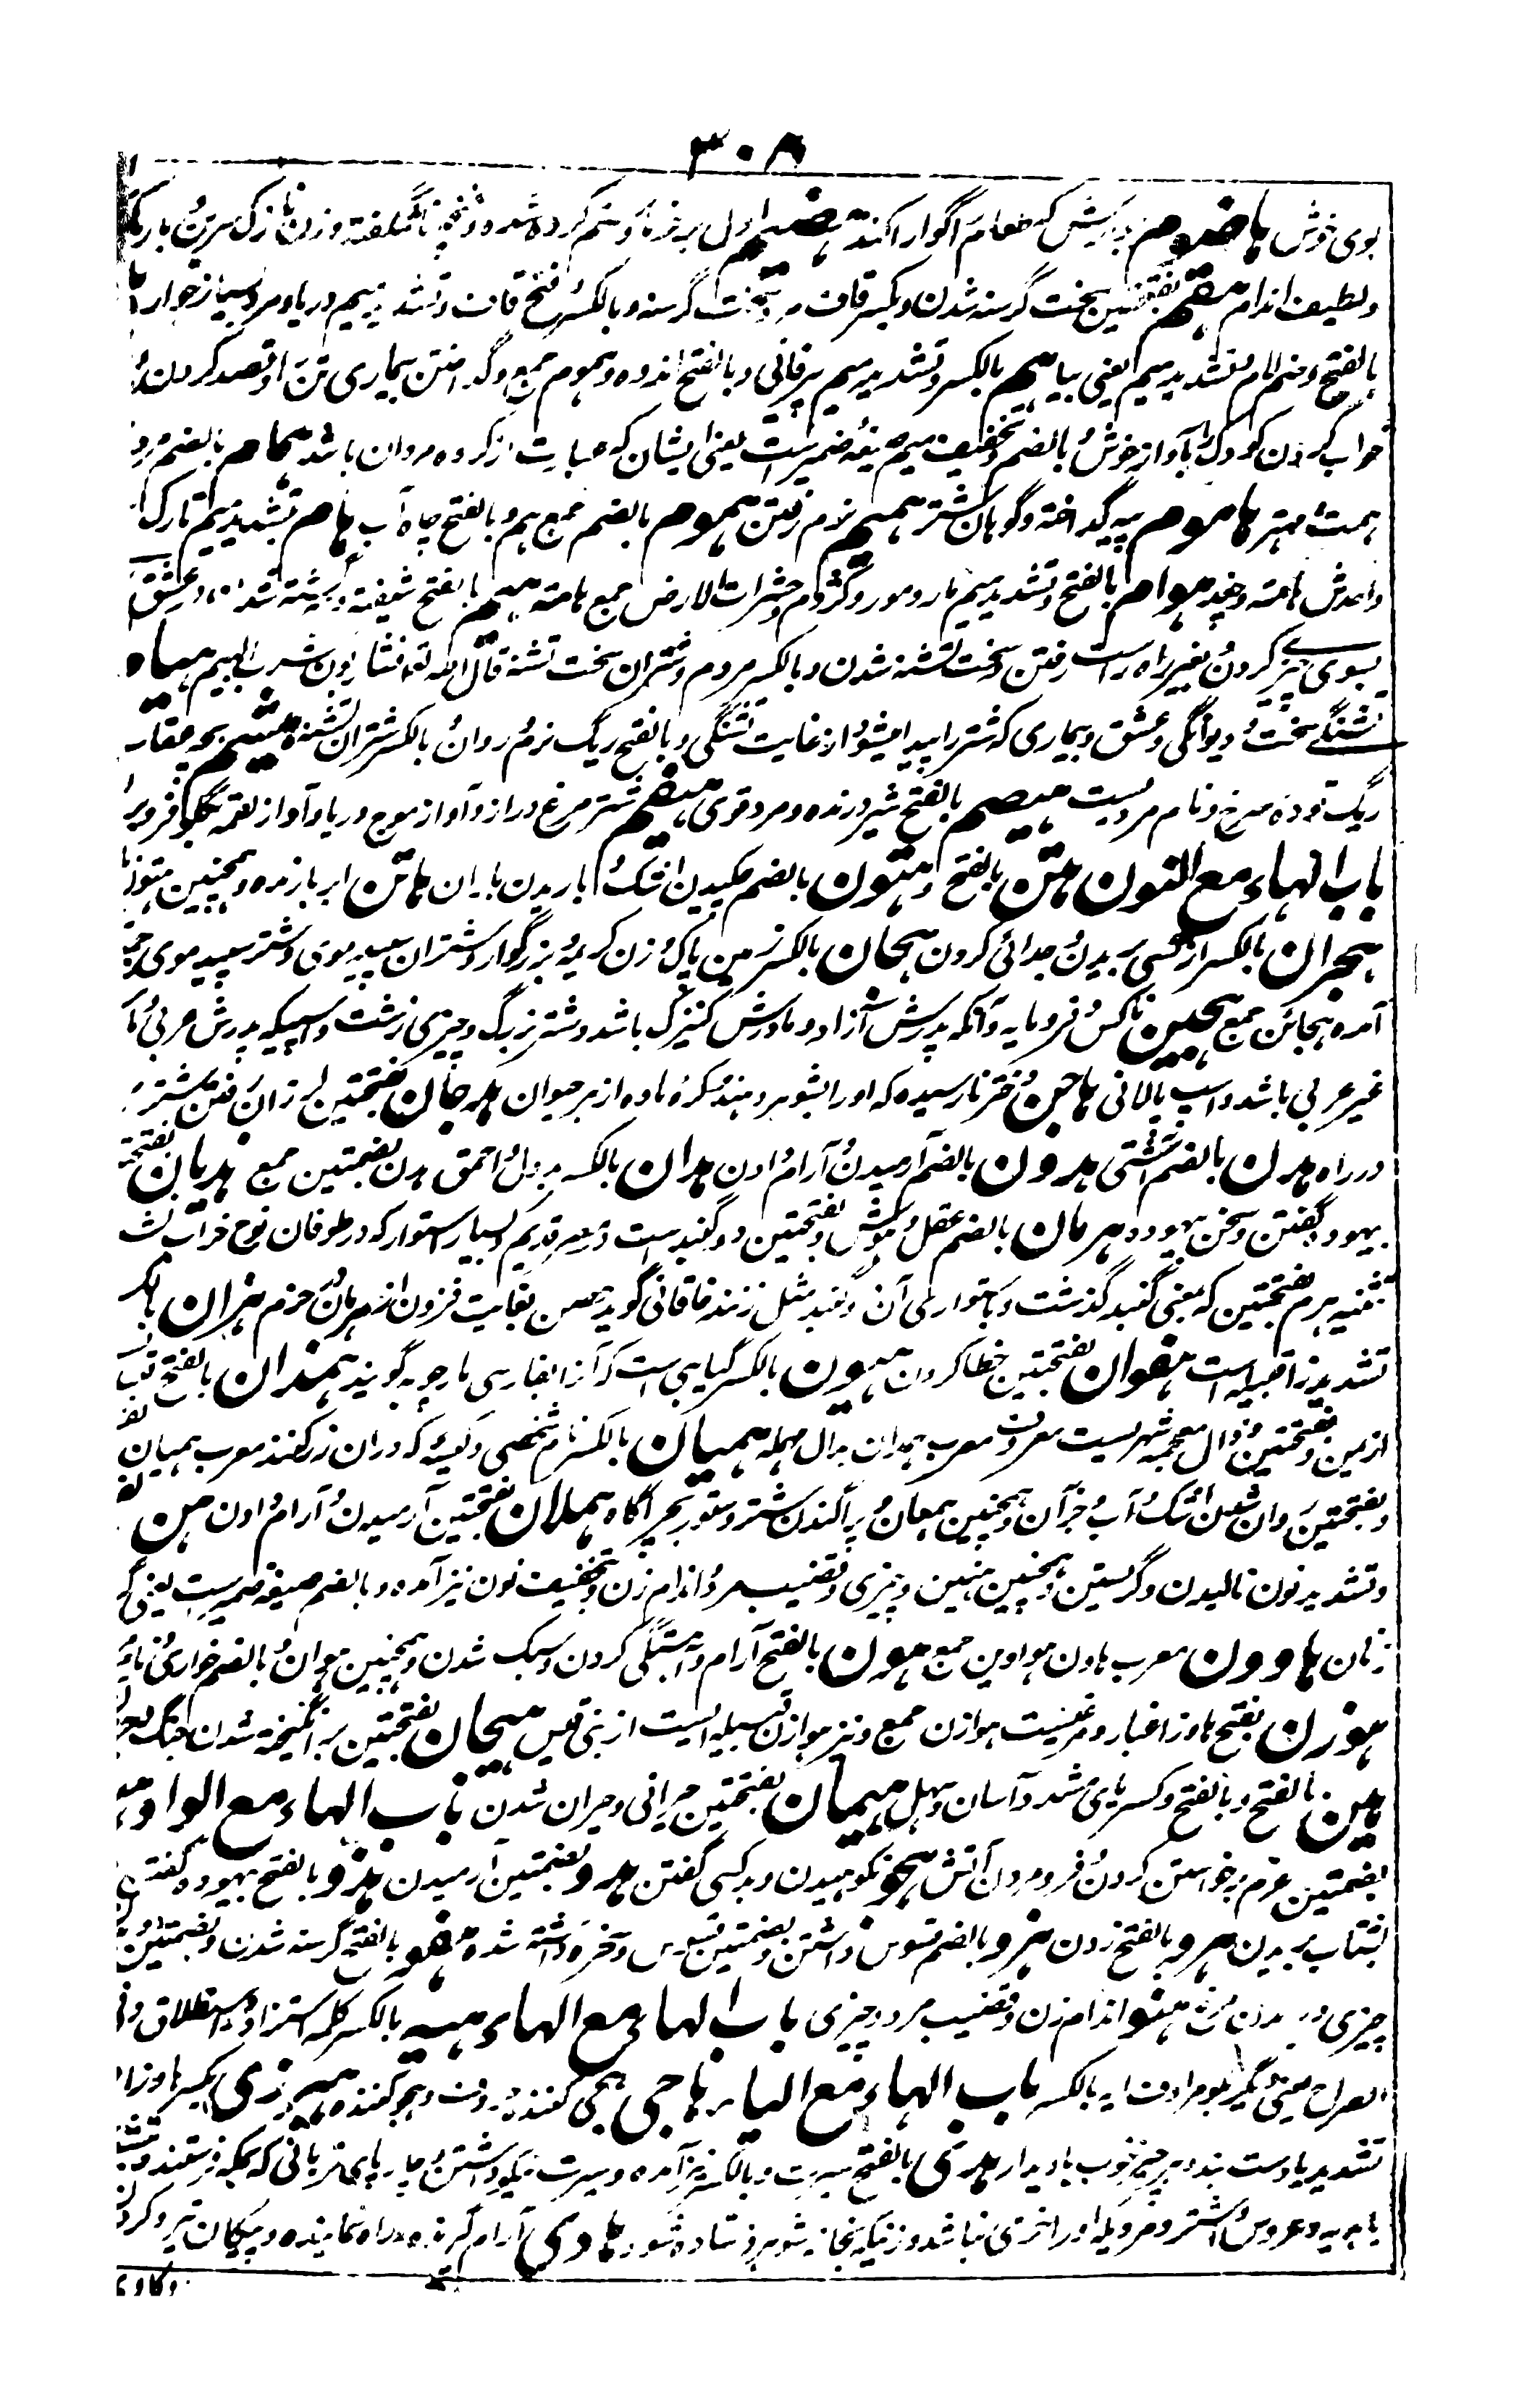 ٣٠٨
بوی خوش هاضوم هر چیزیکه طعام را گوارا کند هضیم اول بر خرما و ستم کرده شده و غنچه ناشگفته و زن نازک سرین باریک
ولطیف اندام هقم بفتحتین سخت گرسنه شدن وبکسر قاف مرد سخت گرسنه وبالکسر وفتح قاف وتشدید میم دریا ومرد بسیار خوار
بالفتح وضم لام وتشدید میم یعنی بیا هم بالکسر وتشدید میم پیر فانی وبالفتح اندوه وهموم جمع وگداختن بیماری تن را وقصد کردن و
خواب کردن کودک را بآواز خوش و بالضم وتخفیف میم صیغه ضمیرست یعنی ایشان که عبارت از گروه مردان باشد همام بالضم مرد
همت مهتر هاموم پیه گداخته وکوهان شتر همیم نرم رفتن هموم بالضم جمع هم وبالفتح چاه آب هام بتشدید میم تارک
واحدش هامه وجغد هوام بالفتح وتشدید میم مار ومور وگژدم وحشرات الارض جمع هامه هیم بالفتح شیفته وسرگشته شدن وعشق
بسوی چیزے کردن و بغیر راه راست رفتن وسخت تشنه شدن وبالکسر مردم وشتران سخت تشنه قال الله تعه فشاربون شرب الهیم هیام
تشنگے سخت و دیوانگی وعشق وبیماری که شتر را پیدا میشود از غایت تشنگی وبالفتح ریگ نرم و روان و بالکسر شتران تشنه هیثم بچه عقاب
ریگ توده سرخ ونام مردیست هیصم بالفتح شیر درنده ومرد قوی هیقم شتر مرغ دراز وآواز موج دریا وآواز لقمه بگلو فرو بردن
باب الهاء مع النون هتن بالفتح وهتون بالضم چکیدن اشک و باریدن باران هاتن ابر بارنده وهمچنین هتون
هجران بالکسر از کسی بریدن و جدائی کردن هجان بالکسر زمین پاک و زن کریمه و بزرگوار وشتران سپید موی وشتر سپید موی وجمع
آمده هجائن جمع هجین ناکس و فرومایه وآنکه پدرش آزاد ومادرش کنیزک باشد وشتر بزرگ وچیزی زشت واسپیکه پدرش عربی و ما
غیر عربی باشد واسپ پالانی هاجن دختر نارسیده که او را بشوهر دهند و کره ماده از هر حیوان هدجان بفتحتین لرزان رفتن شتر
در راه هدن بالضم آشتی هدون بالضم آرمیدن و آرام دادن هدان بالکسر مرد بددل و احمق هدن بضمتین جمع هذیان بفتحتین
بیهوده گفتن وسخن بیهوده هرمان بالضم عقل و هوش وبفتحتین دو گنبدست در مصر قدیم وبسیار استوار که در طوفان نوح خراب نشد
تثنیه هرم بفتحتین که بمعنی گنبد گذشت وباستواری آن دو گنبد مثل زنند خاقانی گوید بحصن بغایت فزون از هرمان و حزم هزان بالکسر
تشدید زا قبیله است هفوان بفتحتین خطا کردن هیون بالکسر گیاهی است که آنرا بفارسی مارچوبه گویند همدان بالفتح قبیله
از یمن وبفتحتین وذال معجمه شهریست معروف معرب همدان بدال مهمله همیان بالکسر نام شخصی وکیسه که دران زر کنند معرب همیان
وبفتحتین روان شدن اشک و آب و جز آن وهمچنین همعان و پراگندن شتر وستور بچراگاه هملان بفتحتین آرمیدن و آرام دادن هن
وتشدید نون نالیدن وگریستن وهمچنین هنین وچیزی وقضیب مرد و اندام زن وبتخفیف نون نیز آمده وبالضم صیغه ضمیرست یعنی
زنان هاوون معرب هاون هواوین جمع هون بالفتح آرام وآهستگی کردن وسبک شدن وهمچنین هوان و بالضم خواری و
هوزن بفتح ها وزا غبار ومرغیست هوازن جمع ونیز هوازن قبیله ایست از بنی قیس هیجان بفتحتین برانگیخته شدن جنگ
هین بالفتح وبالفتح وکسر یای مشدد آسان وسهل هیمان بفتحتین حیرانی وحیران شدن باب الهاء مع الواو
بضمتین عزم برخواستن کردن و فرو مردن آتش هجو نکوهیدن وبد کسی گفتن هدو بضمتین آرمیدن هذو بالفتح بیهوده گفتن
بشتاب بریدن هرو بالفتح زدن هزو بالضم فسوس داشتن وبضمتین فسوس وسخره داشته شده هفو بالفتح گرسنه شدن وبضمتین
چیزی وپریدن مرغ هنو اندام زن وقضیب مرد وچیزی باب الهاء مع الهاء هیه بالکسر کلمه استزاد واستطلاق
الصراح یعنی دیگر بگو مرادف ایه بالکسر باب الهاء مع الیاء هاجی هجی کننده حروف وهجو کننده هبرزی بکسر ها وزا
تشدید یا دست بند وهر چیز خوب با دیدار هدی بالفتح سیرت وبالکسر نیز آمده وسیرت نیکو داشتن و چارپای قربانی که بمکه فرستند
یا هدیه وعروس و اشتر ومردیکه او را حرمتی نباشد وزنیکه بخانه شوهر فرستاده شود هادی آرام گیرنده وراه نماینده وپیکان تیر وگردن
وگاو